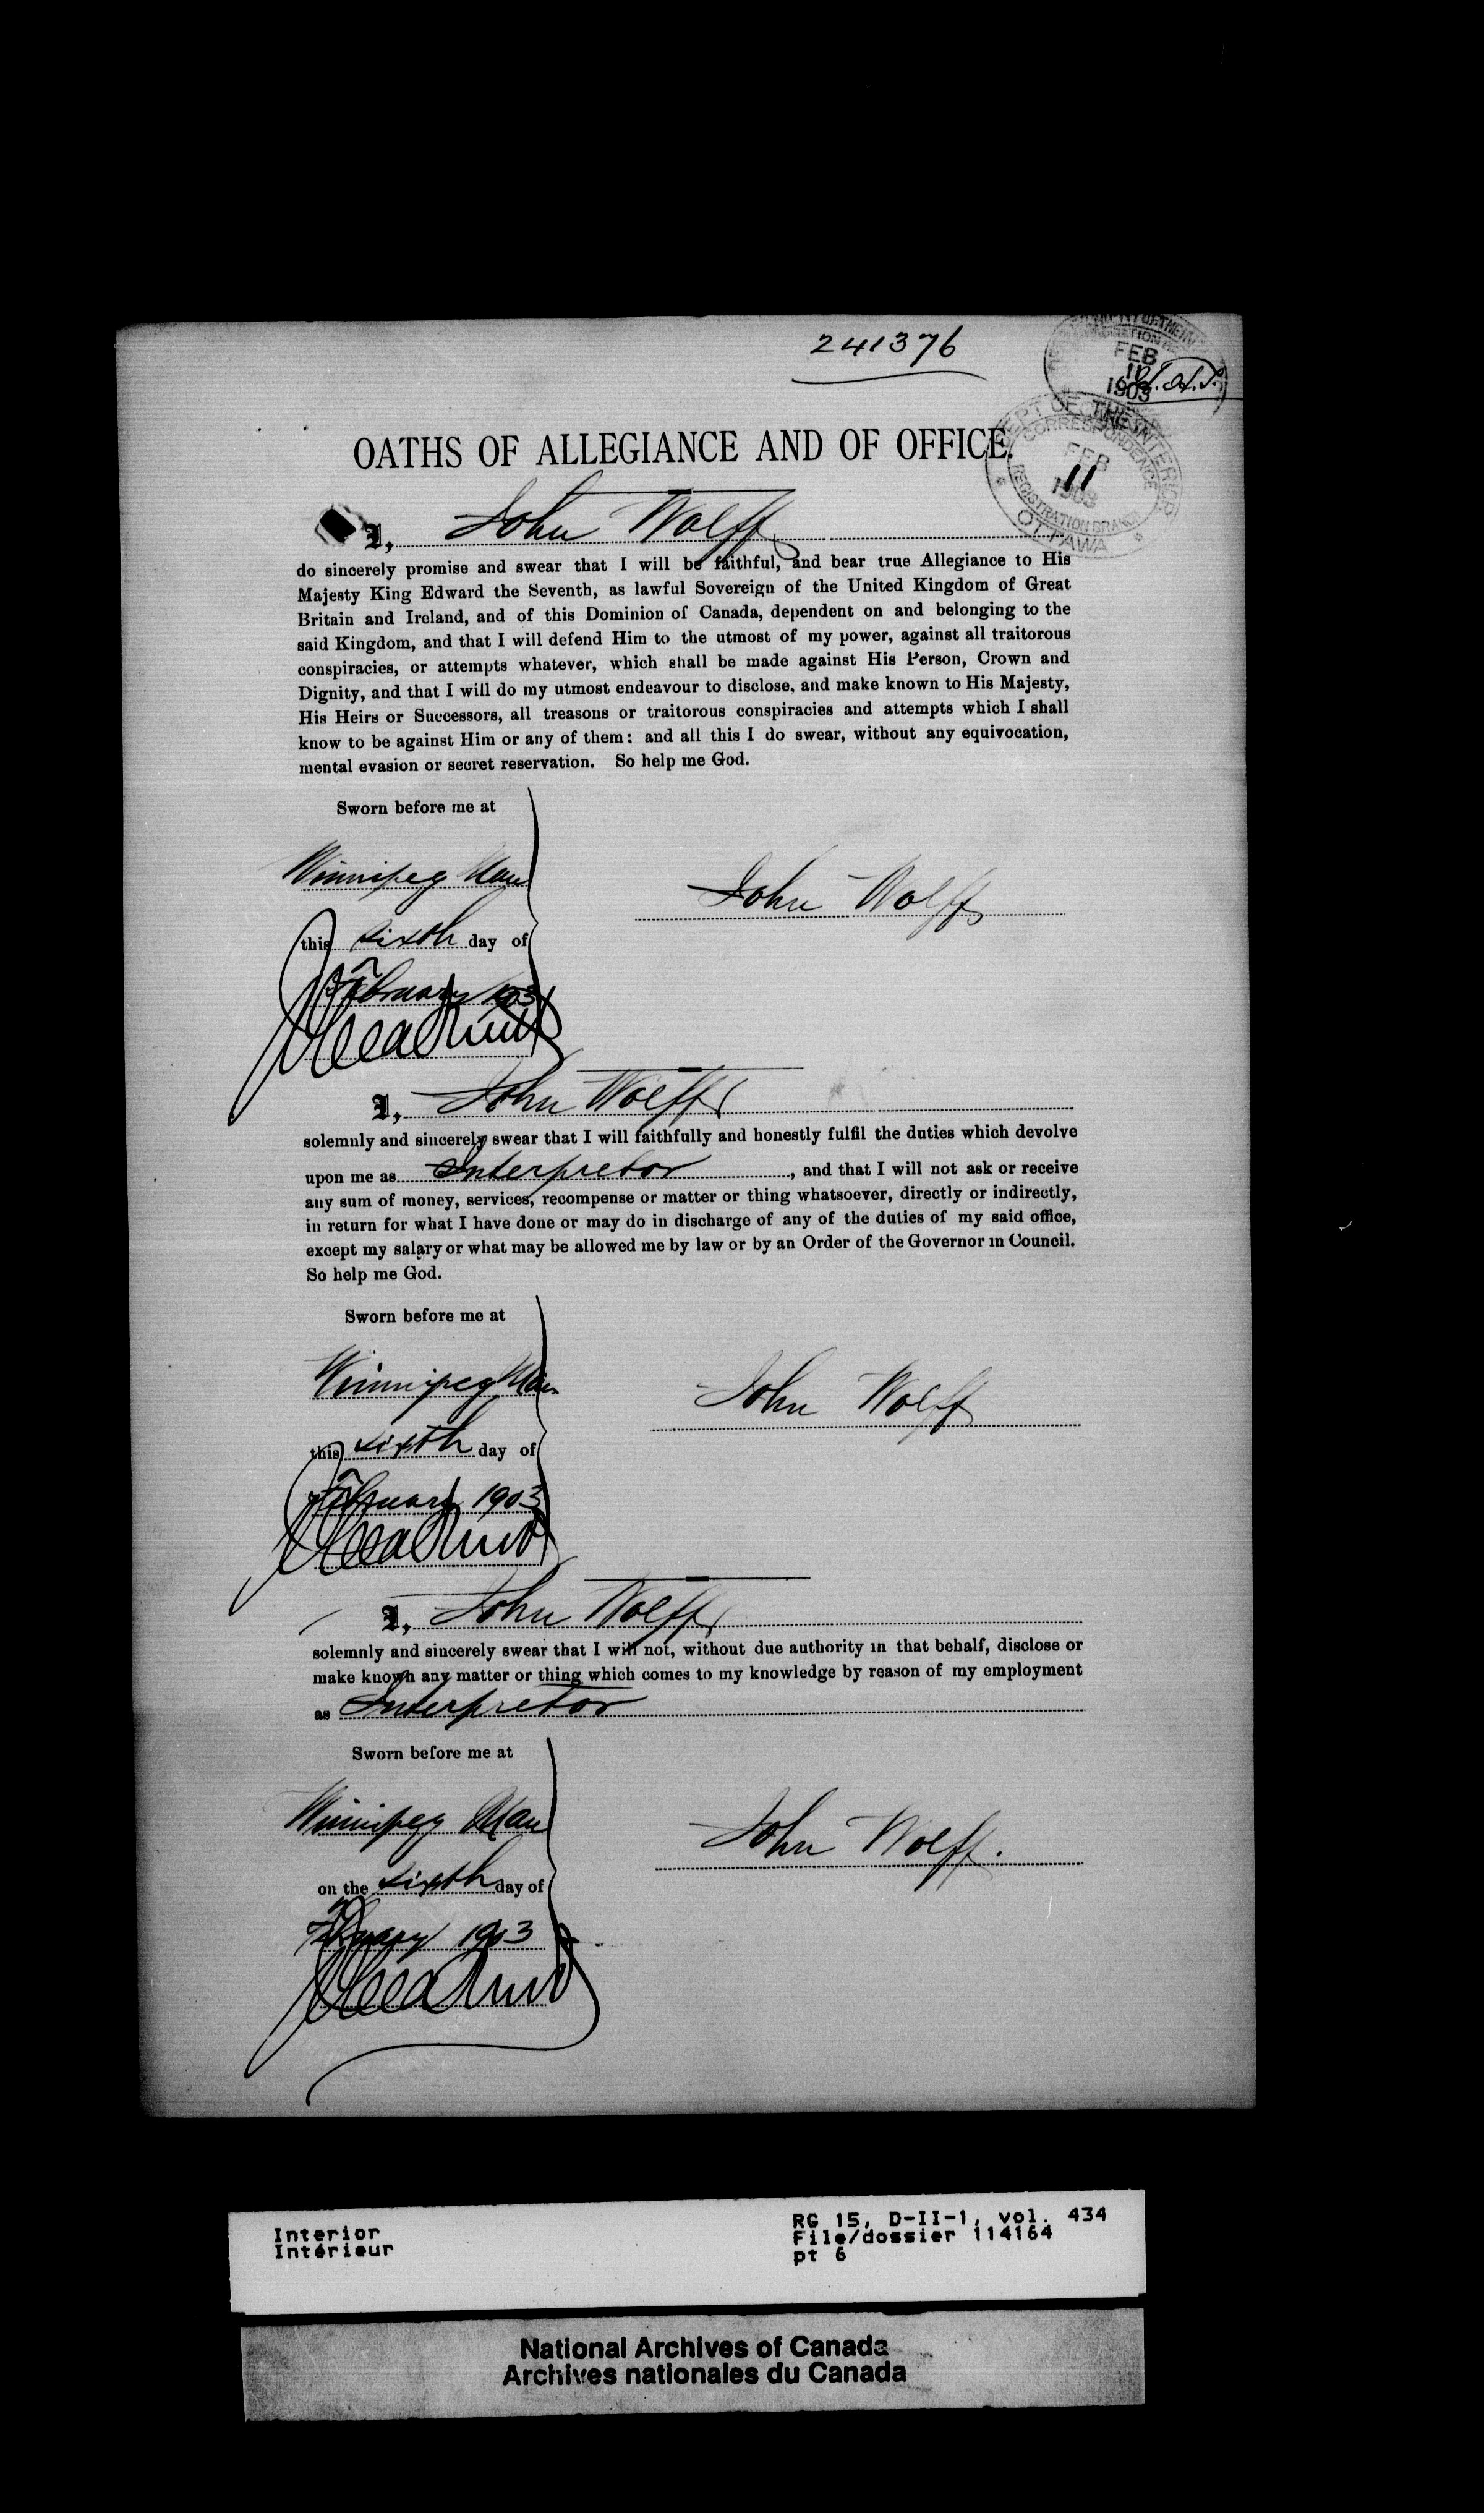 241376
DEPARTMENT OF THE INTERIOR
FEB
11
1903
DEPT OF THE INTERIOR
CORRESPONDENCE
FEB
11
1903
REGISTRATION BRANCH
OTTAWA
OATHS OF ALLEGIANCE AND OF OFFICE.
I, John Wolff
do sincerely promise and swear that I will be faithful, and bear true Allegiance to His
Majesty King Edward the Seventh, as lawful Sovereign of the United Kingdom of Great
Britain and Ireland, and of this Dominion of Canada, dependent on and belonging to the
said Kingdom, and that I will defend Him to the utmost of my power, against all traitorous
conspiracies, or attempts whatever, which shall be made against His Person, Crown and
Dignity, and that I will do my utmost endeavour to disclose, and make known to His Majesty,
His Heirs or Successors, all treasons or traitorous conspiracies and attempts which I shall
know to be against Him or any of them: and all this I do swear, without any equivocation,
mental evasion or secret reservation. So help me God.
Sworn before me at
Winnipeg Man
John Wolff
this sixth day of
February 1903
I, John Wolff
solemnly and sincerely swear that I will faithfully and honestly fulfil the duties which devolve
upon me as Interpretor, and that I will not ask or receive
any sum of money, services, recompense or matter or thing whatsoever, directly or indirectly,
in return for what I have done or may do in discharge of any of the duties of my said office,
except my salary or what may be allowed me by law or by an Order of the Governor in Council.
So help me God.
Sworn before me at
Winnipeg Man
John Wolff
this sixth day of
February 1903
I, John Wolff
solemnly and sincerely swear that I will not, without due authority in that behalf, disclose or
make known any matter or thing which comes to my knowledge by reason of my employment
as Interpretor
Sworn before me at
Winnipeg Man
John Wolff.
on the sixth day of
February 1903
Interior
Intérieur
RG 15, D-II-1, vol. 434
File/dossier 114164
pt 6
National Archives of Canada
Archives nationales du Canada